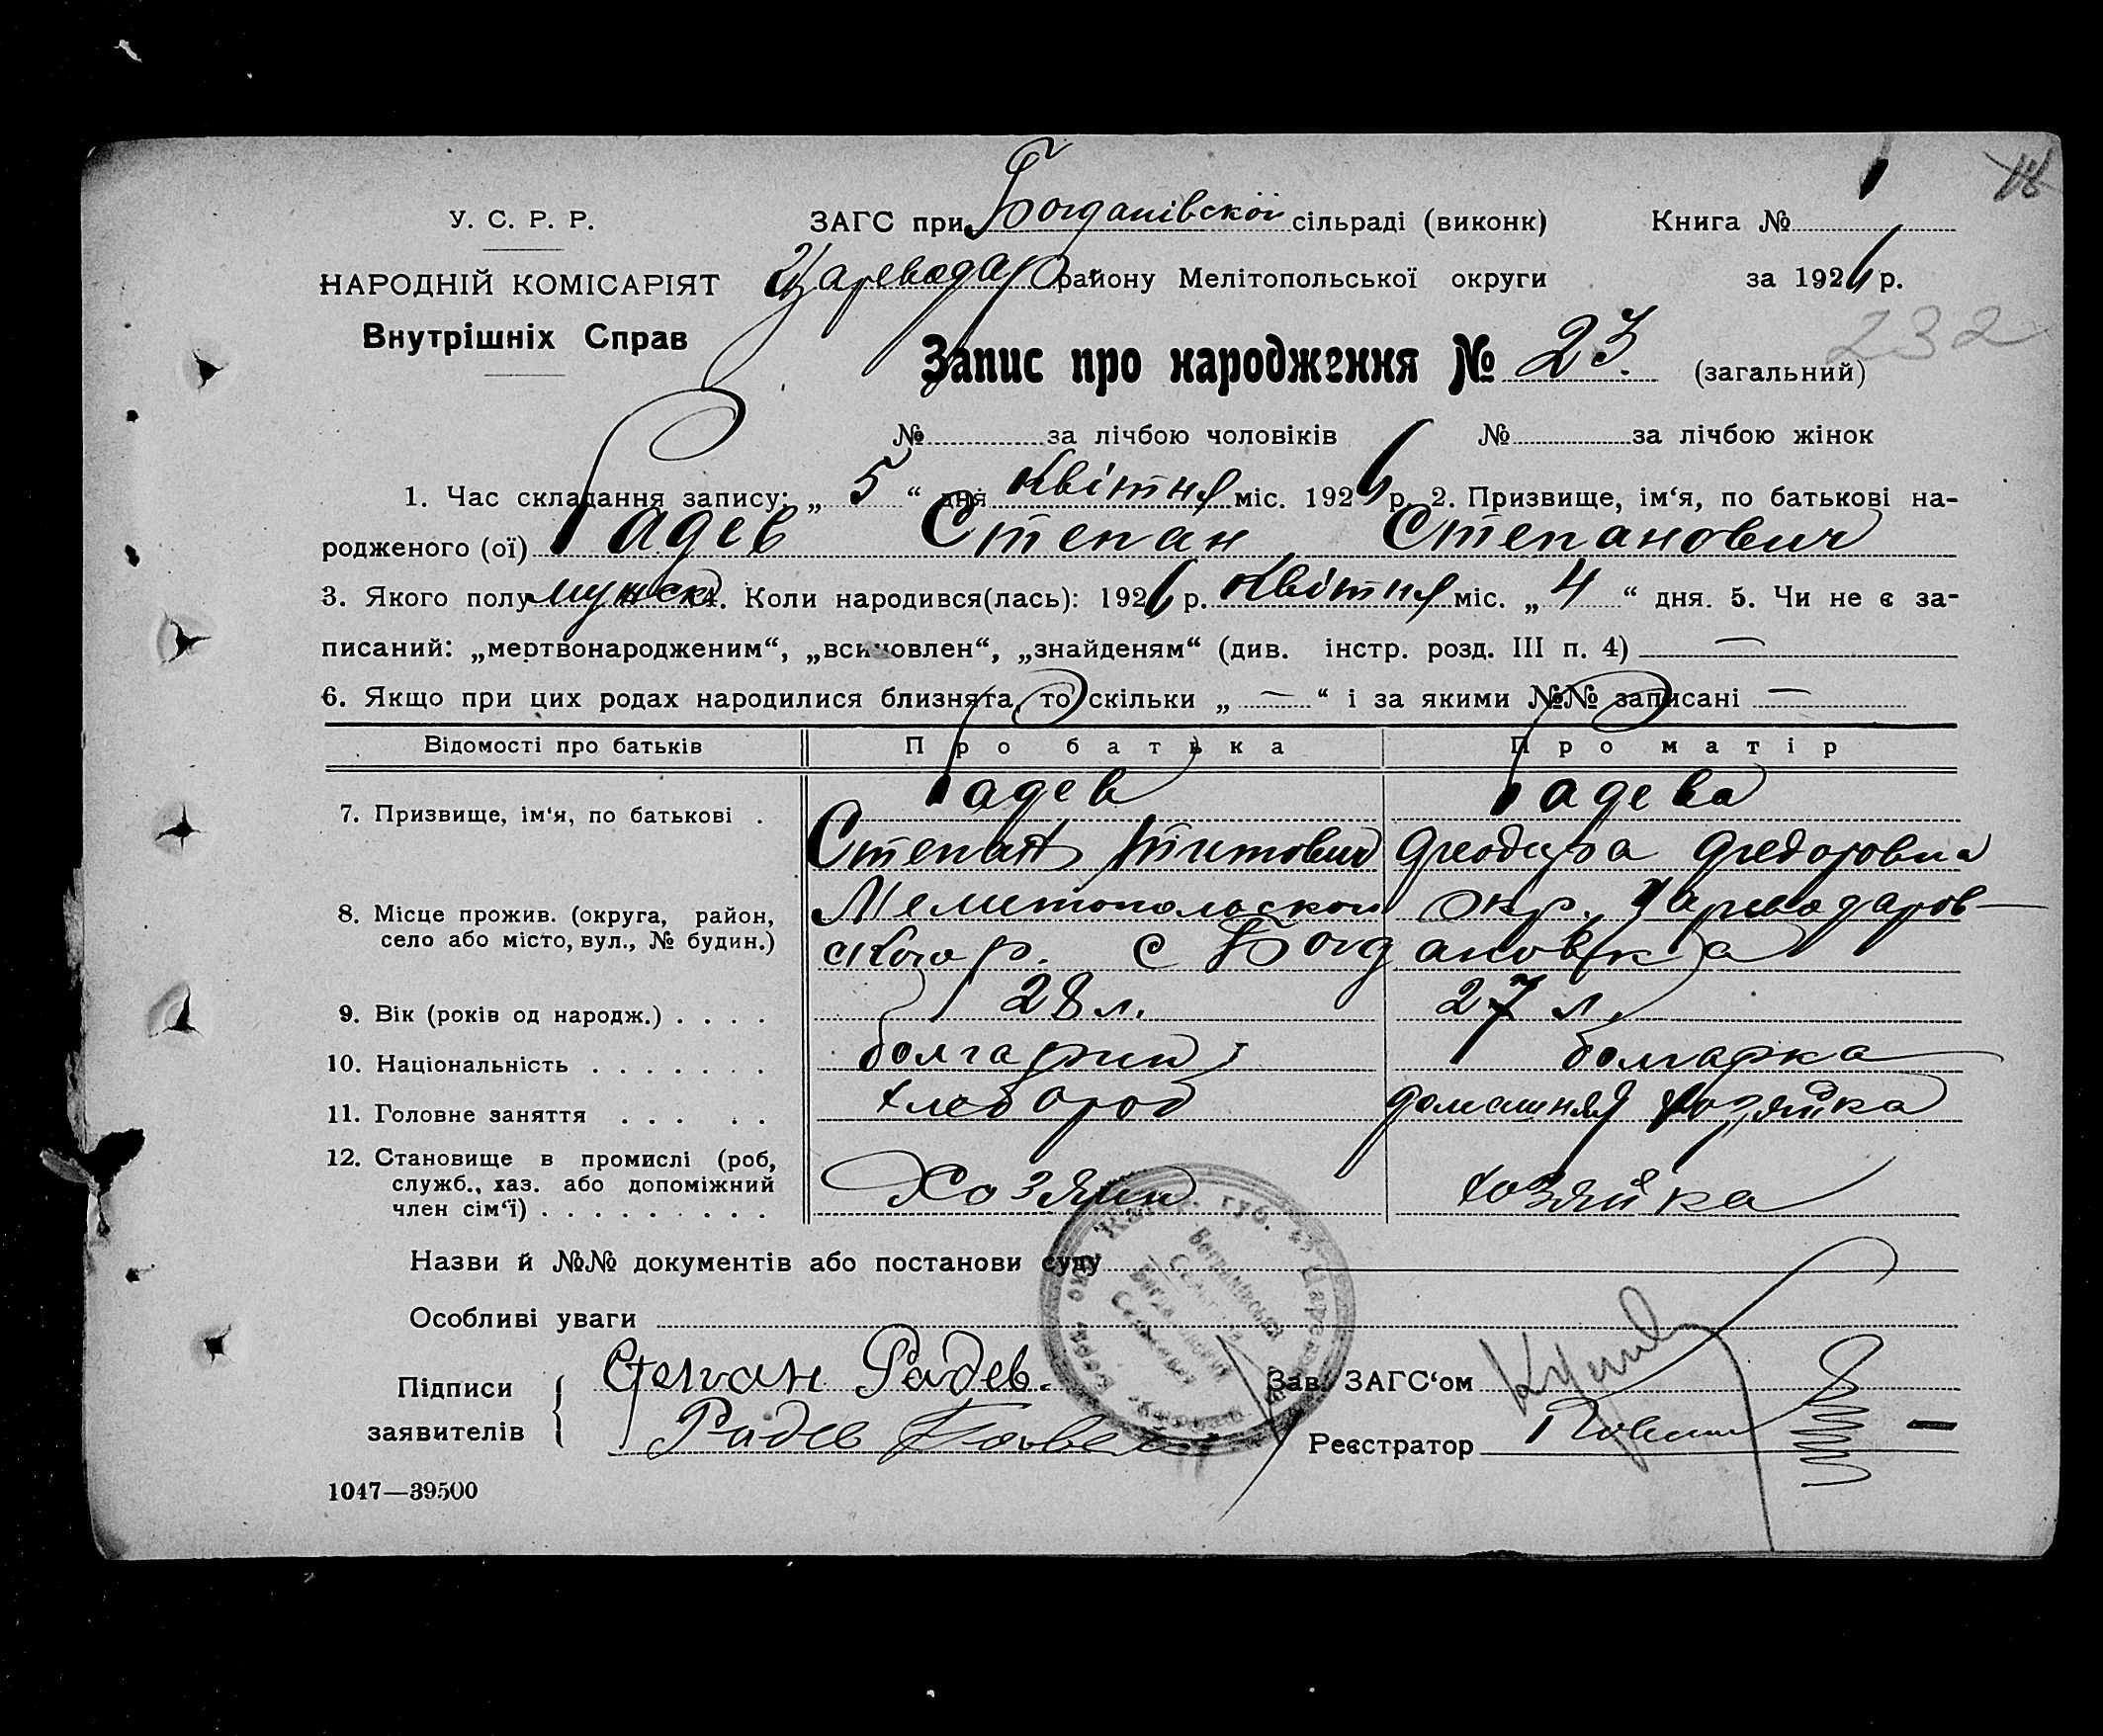 У. С. Р. Р.
НАРОДНІЙ КОМІСАРІЯТ
Внутрішніх Справ
18
ЗАГС при Богданівской сільраді (виконк) Книга № 1
Цареводар. району Мелітопольської округи за 1926 р.
Запис про народження № 23. (загальний)
232
№ за лічбою чоловіків № за лічбою жінок
1. Час складання запису: „ 5 “ дня Квітня міс. 1926 р. 2. Призвище, ім‘я, по батькові на-
родженого (ої) Радев Степан Степанович
3. Якого полу мужск. Коли народився(лась): 1926 р. Квітня міс. „ 4 “ дня. 5. Чи не є за-
писаний: „мертвонародженим“, „всиновлен“, „знайденям“ (див. інстр. розд. III п. 4) —
6. Якщо при цих родах народилися близнята, то скільки „ — “ і за якими №№ записані —
Відомості про батьків Про батька Про матір
7. Призвище, ім‘я, по батькові . Радев Радева
Степан Титович Федоровна
8. Місце прожив. (округа, район, Мелитопольской окр. Цареводаров-
село або місто, вул., № будин.) ского р. с Богдановка
9. Вік (років од народж.) . . . . 28 л. 27 л.
10. Національність . . . . . . . болгарин болгарка
11. Головне заняття . . . . . хлебород домашняя хозяйка
12. Становище в промислі (роб,
служб., хаз. або допоміжний
член сім‘ї) . . . . . . . . . Хозяин хозяйка
Назви й №№ документів або постанови суду
Особливі уваги
Підписи
заявителів
Степан Радев.
Радев
Зав. ЗАГС‘ом
Реєстратор
1047—39500